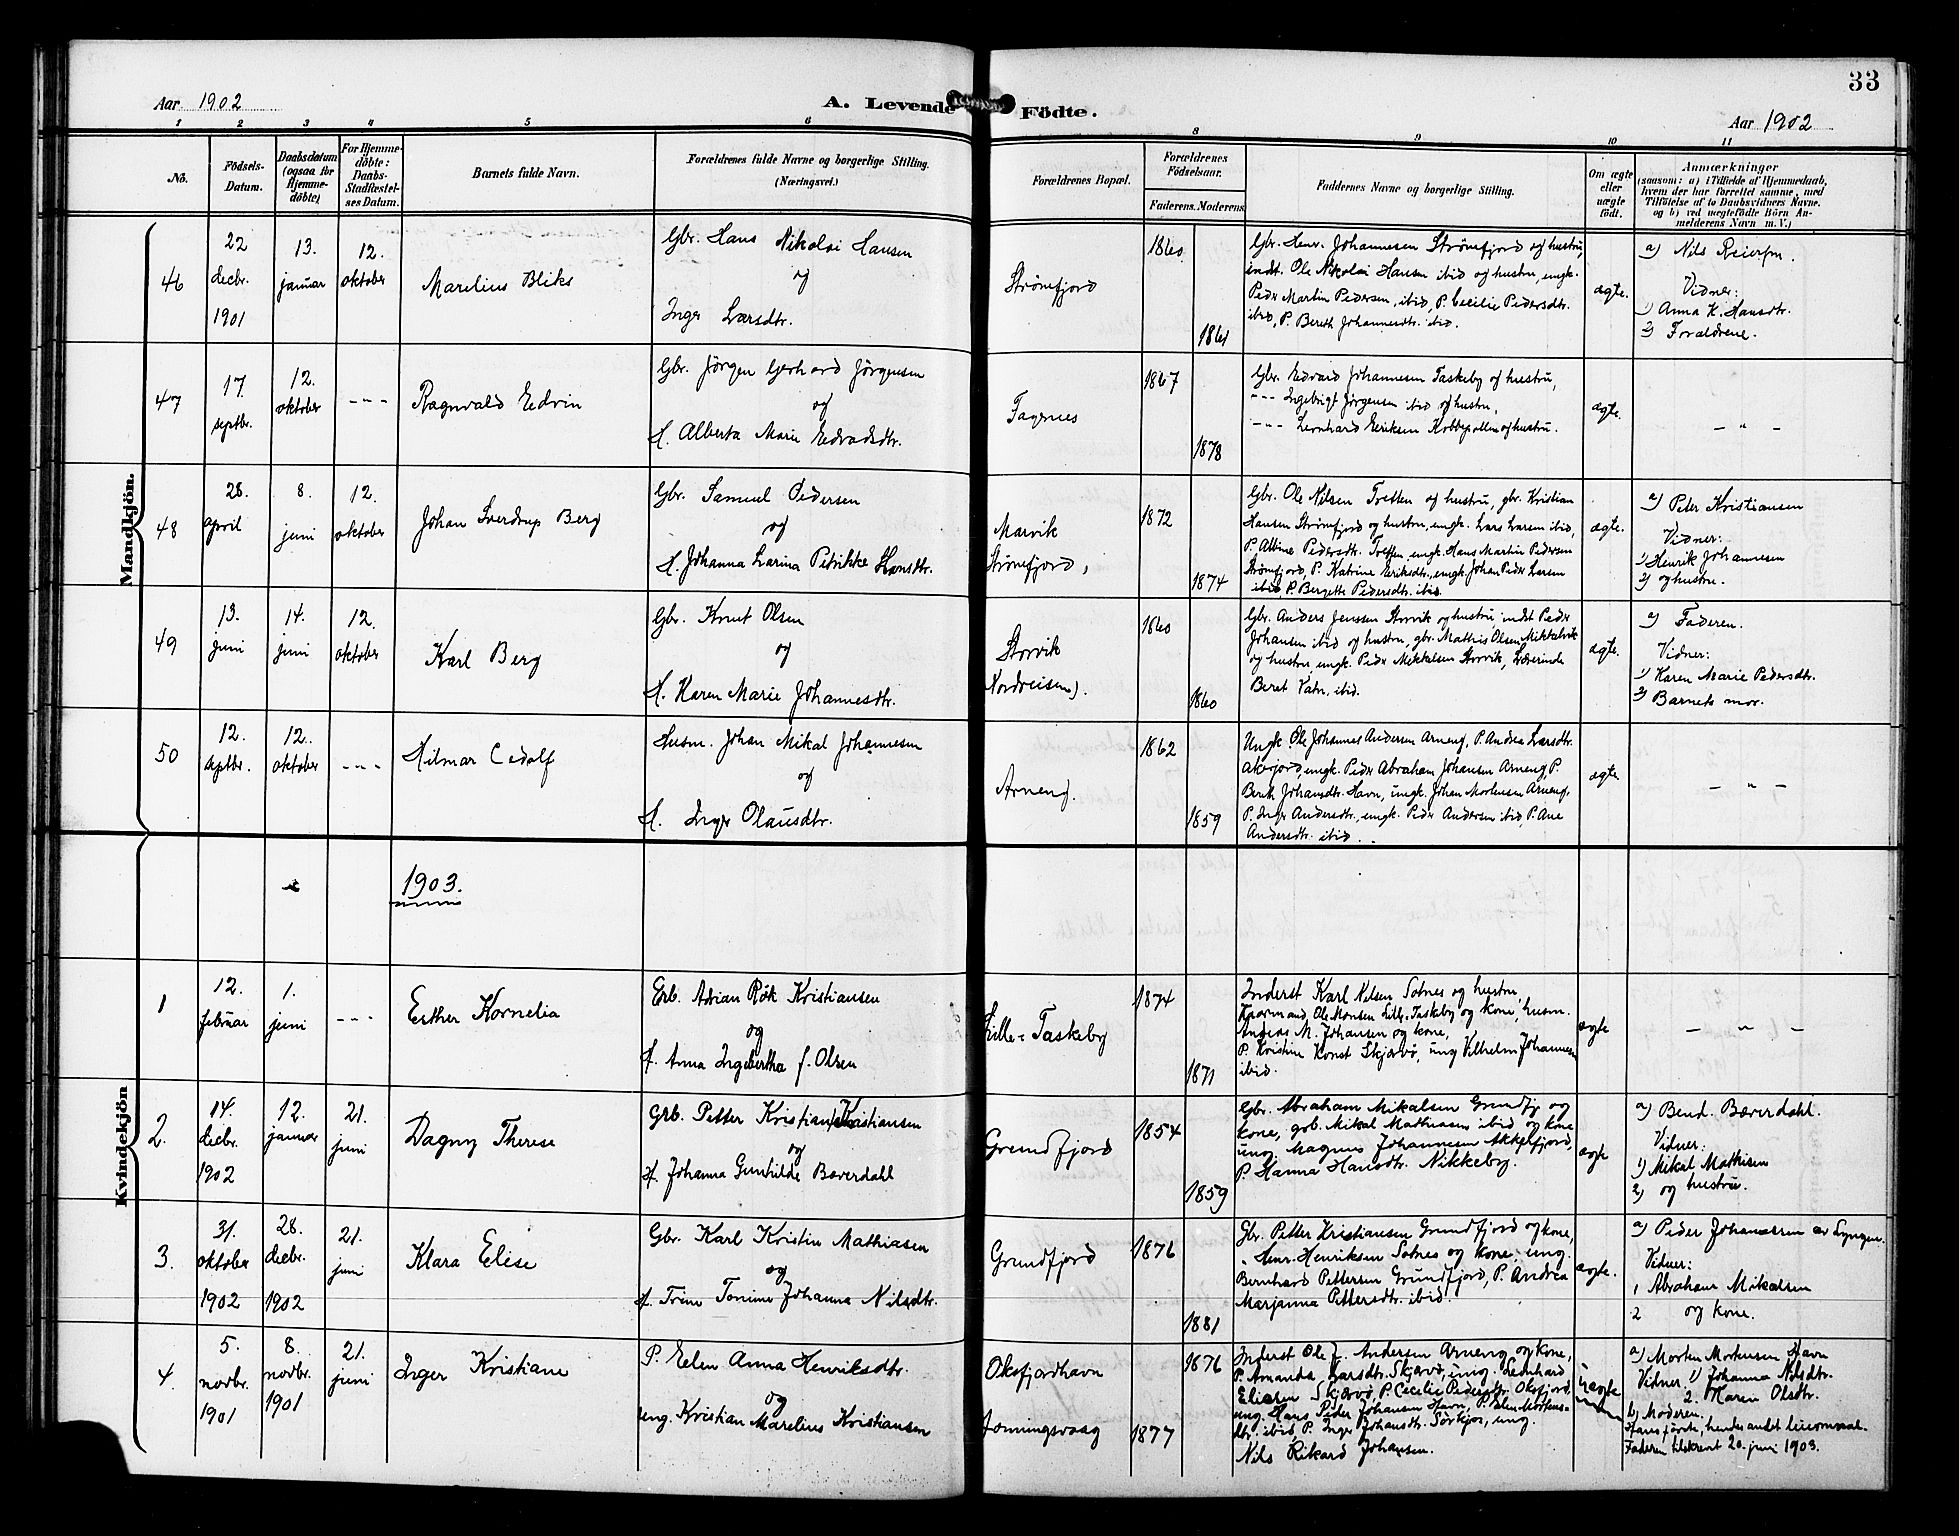 33
Aar 1902
A. Levende Födte.
Aar 1902
1 2 3 4 5 6 8 9 10 11
No.
Födsels-
Datum.
Daabsdatum
(ogsaa for
Hjemme-
döbte)
For Hjemme-
döbte:
Daabs-
Stadfæstel-
ses Datum.
Barnets fulde Navn.
Forældrenes fulde Navne og borgerlige Stilling.
(Næringsvei.)
Forældrenes Bopæl.
Forældrenes
Födselsaar.
Faderens. Moderens.
Faddernes Navne og borgerlige Stilling.
Om ægte
eller
uægte
födt.
Anmærkninger
(saasom: a) i Tilfælde af Hjemmedaab,
hvem der har forrettet samme, med
Tilföielse af to Daabsvidners Navne.
og b) ved uægtefödte Börn An-
melderens Navn m.V.)
Mandkjön.
46
22
decbr.
1901
13.
januar
12.
oktober
Marelius Bliks
Gbr. Hans Nikolai Hansen
og
Inger Larsdtr.
Strømfjord
1860
1861
Gbr. Henr. Johannesen Strømfjord og hustru,
indst. Ole Nikolai Hansen ibid og hustru, ungk.
Peder Martin Pedersen, ibid, P. Cecilie Pedersdtr.
ibid, P. Bereth Johannesdtr. ibid.
ægte.
a) Nils Reiersen.
Vidner:
1) Anna K. Hansdtr.
2) Forældrene.
47
17.
septbr.
12.
oktober
- - -
Ragnvald Edvin
Gbr. Jörgen Gerhard Jörgensen
og
H. Alberta Marie Edvardsdtr.
Fagernes
1867
1878
Gbr. Edvard Johannesen Taskeby og hustru,
- - - Ingebrigt Jørgensen ibid og hustru,
- - - Leonhard Eriksen Kobbepollen og hustru.
ægte.
- " -
48
28.
april
8.
juni
12.
oktober
Johan Sverdrup Berg
Gbr. Samuel Pedersen
og
H. Johanna Larina Petrikke Hansdtr.
Marvik
Strømfjord,
1872
1874
Gbr. Ole Nilsen Tretten og hustru, gbr. Kristian
Hansen Strømfjord og hustru, ungk. Lars Larsen ibid,
P. Albine Pedersdtr. Tretten, ungk. Hans Martin Pedersen
Strømfjord, P. Katrine Eriksdtr., ungk. Johan Peder Larsen
ibid, P. Bergette Pedersdtr. ibid.
ægte.
a) Peter Kristiansen
Vidner:
1) Henrik Johannesen
2) og hustru.
49
13.
juni
14.
juni
12.
oktober
Karl Berg
Gbr. Knut Olsen
og
H. Karen Marie Johannesdtr.
Storvik
Nordreisen).
1860
1860
Gbr. Anders Jenssen Storvik og hustru, indst Peder
Johansen ibid og hustru, gbr. Mathis Olsen Mikkelvik
og hustru, ungk. Peder Mikkelsen Storvik, Lærerinde
Beret Vatn, ibid.
ægte.
a) Faderen.
Vidner:
1) Karen Marie Pedersdtr.
2) Barnets mor.
50
12.
septbr.
12.
oktober
- - -
Hilmar Cedolf
Husm. Johan Mikal Johannesen
og
H. Inger Olausdtr.
Arneng.
1862
1859
Ungk. Ole Johannes Andersen Arneng, P. Andrea Larsdtr.
Akerjord, ungk. Peder Abraham Johansen Arneng, P.
Bereth Johansdtr. Havn, ungk. Johan Mortensen Arneng,
P. Inger Andersdtr., ungk. Peder Andersen ibid, P. Ane
Andersdtr. ibid.
ægte.
- " -
1903.
Kvindekjön
1
12.
februar
1.
juni
- - -
Esther Kornelia
Grb. Adrian Røk Kristiansen
og
H. Anna Ingebertha f. Olsen
Lille-Taskeby
1874
1871
Inderst Karl Nilsen Sotnes og hustru,
Kaarmand Ole Monsen Lille-Taskeby og kone, husm.
Anders M. Johansen og kone,
P. Kristine Konst Skjærvø, ung Vilhelm Johannesen
ibid.
ægte
- " -
2.
14.
decbr.
1902
12.
januar
21.
juni
Dagny Therese
Grb. Petter Kristian Kristiansen
og
H. Johanna Gunhilde Bæverdahl
Grundfjord
1854
1859
Gbr. Abraham Mikalsen Grundfj og
kone, grb. Mikal Mathiasen ibid og kone
ung Magnus Johannesen Akkefjord,
P. Hanna Hansdtr. Nikkeby.
ægte
a) Bend. Bæverdahl.
Vidner:
1) Mikal Mathisen
2) og hustru.
3.
31.
oktober
1902
28.
decbr.
1902
21.
juni
Klara Elise
Gbr. Karl Kristin Mathiasen
og
H. Trine Tomine Johanna Nilsdtr.
Grundfjord
1876
1881
Gbr. Petter Kristiansen Grundfjord og kone,
" Henr. Henriksen Sotnes og kone, ung.
Bernhard Pettersen Grundfjord, P. Andrea
Marjanna Pettersdtr. ibid.
ægte.
a) Peder Johanessen av Lyngen
Vidner:
1 Abraham Mikalsen
2 og kone.
4.
5.
novbr.
1901
8.
novbr.
1901
21.
juni
Inger Kristiane
P. Elen Anna Henriksdtr.
og
ung. Kristian Marelius Kristiansen
Oksfjordhavn
Lønningsvaag
1876
1877
Inderst Ole J. Andersen Arneng og kone,
P. Amanda Larsdtr. Skjærvø, ung. Leonhard
Eliasen Skjærvø, P. Cecilie Pedersdtr. Oksfjord,
ung. Hans Peder Johansen Havn, P. Elen Mortens-
dtr. ibid, P. Inger Johansdtr. Sørkjos, ung.
Nils Rikard Johansen.
uægte
a) Morten Mortensen Havn
Vidner 1) Johanna Nilsdtr.
2. Karen Olsdtr.
b) Moderen.
Hans første, hendes andet leiermaal.
Faderen tilskrevet 20. juni 1903.